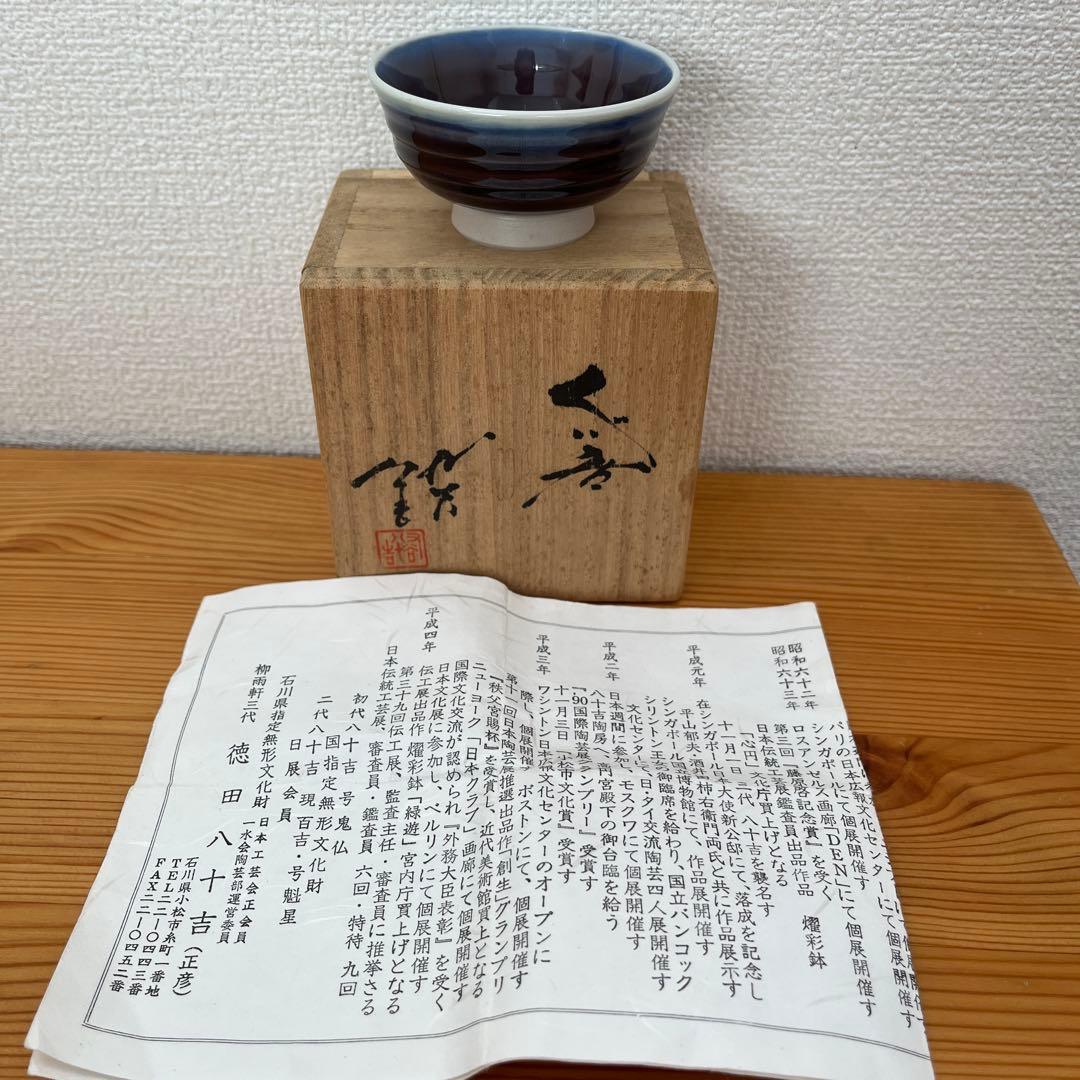 昭和六十二年
昭和六十三年
パリの日本広報文化センターにて個展開催す
シンガポールにて個展開催す
ロスアンゼルス画廊「DEN」にて個展開催す
第三回『藤原啓記念賞』を受く
日本伝統工芸展鑑査員出品作品 燿彩鉢
「心円」文化庁買上げとなる
十一月一日 三代、八十吉を襲名す
平成元年
在シンガポール日本大使新公邸にて、落成を記念し
平山郁夫・酒井柿右衛門両氏と共に作品展示す
シンガポール国立博物館にて、作品展開催す
シリントン王女御臨席を給わり、国立バンコック
文化センターにて、日・タイ交流陶芸四人展開催す
平成二年
日本週間に参加、モスクワにて個展開催す
八十吉陶房へ、高宮殿下の御台臨を給う
『'90国際陶芸展グランプリー』受賞す
十一月三日『小松市文化賞』受賞す
平成三年
ワシントン日本広報文化センターのオープンに
際し、個展開催す ボストンにて、個展開催す
第十一回日本陶芸展推選出品作「創生」グランプリ
『秩父宮賜杯』を受賞し、近代美術館買上となる
ニューヨーク「日本クラブ」画廊にて個展開催す
国際文化交流が認められ『外務大臣表彰』を受く
平成四年
日本文化展に参加し、ベルリンにて個展開催す
第三十九回伝工展、監査主任・審査員に推挙さる
伝工展出品作 燿彩鉢「緑遊」宮内庁買上げとなる
日本伝統工芸展、審査員・鑑査員 六回・特待 九回
初代八十吉 号鬼仏
国指定無形文化財
二代八十吉 現百吉・号魁星
日展会員
石川県指定無形文化財
日本工芸会正会員
一水会陶芸部運営委員
柳雨軒三代 徳田八十吉(正彦)
石川県小松市糸町一番地
TEL二二-〇四四三番
FAX二二-〇四五二番